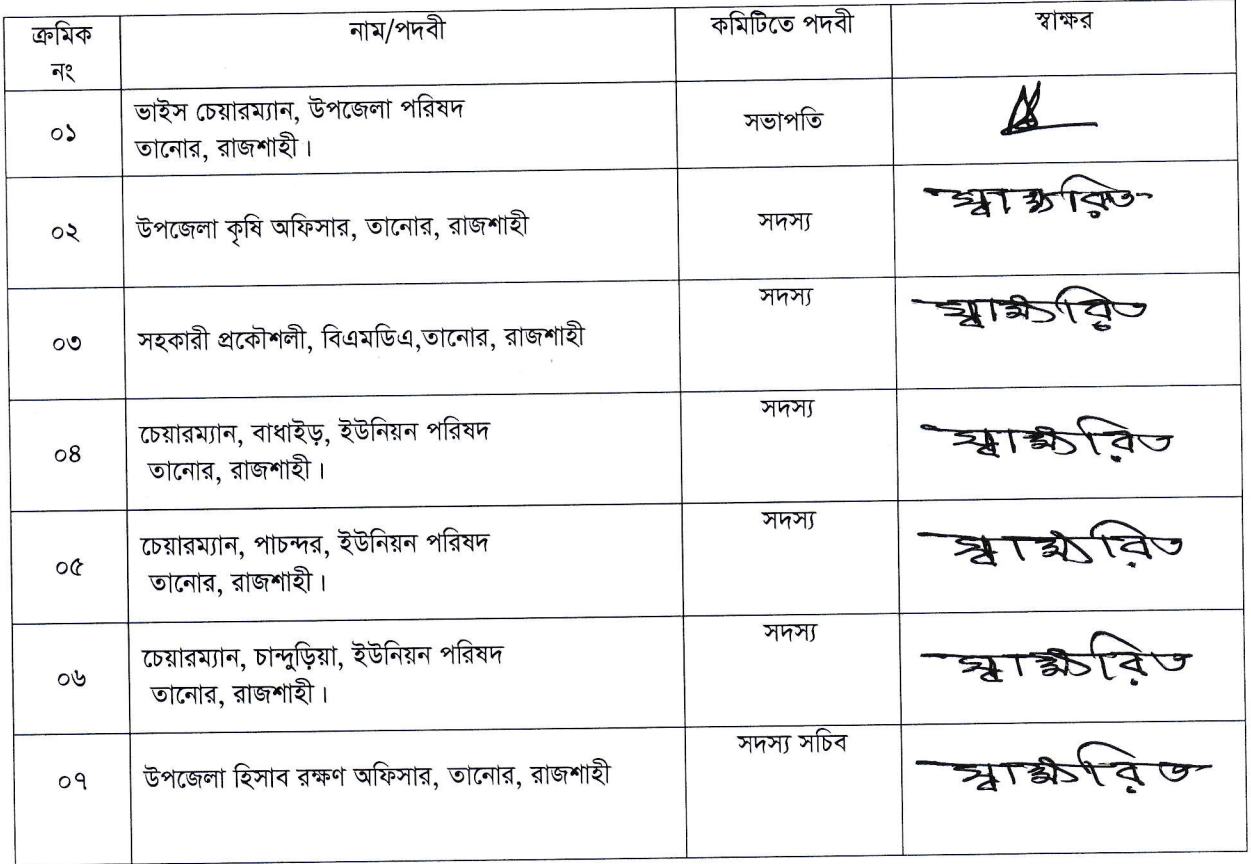 ক্রমিক নং নাম/পদবী কমিটিতে পদবী স্বাক্ষর
০১ ভাইস চেয়ারম্যান, উপজেলা পরিষদ সভাপতি
তানোর, রাজশাহী।
০২ উপজেলা কৃষি অফিসার, তানোর, রাজশাহী সদস্য স্বাক্ষরিত
০৩ সহকারী প্রকৌশলী, বিএমডিএ,তানোর, রাজশাহী সদস্য স্বাক্ষরিত
০৪ চেয়ারম্যান, বাধাইড়, ইউনিয়ন পরিষদ সদস্য স্বাক্ষরিত
তানোর, রাজশাহী।
০৫ চেয়ারম্যান, পাচন্দর, ইউনিয়ন পরিষদ সদস্য স্বাক্ষরিত
তানোর, রাজশাহী।
০৬ চেয়ারম্যান, চান্দুড়িয়া, ইউনিয়ন পরিষদ সদস্য স্বাক্ষরিত
তানোর, রাজশাহী।
০৭ উপজেলা হিসাব রক্ষণ অফিসার, তানোর, রাজশাহী সদস্য সচিব স্বাক্ষরিত